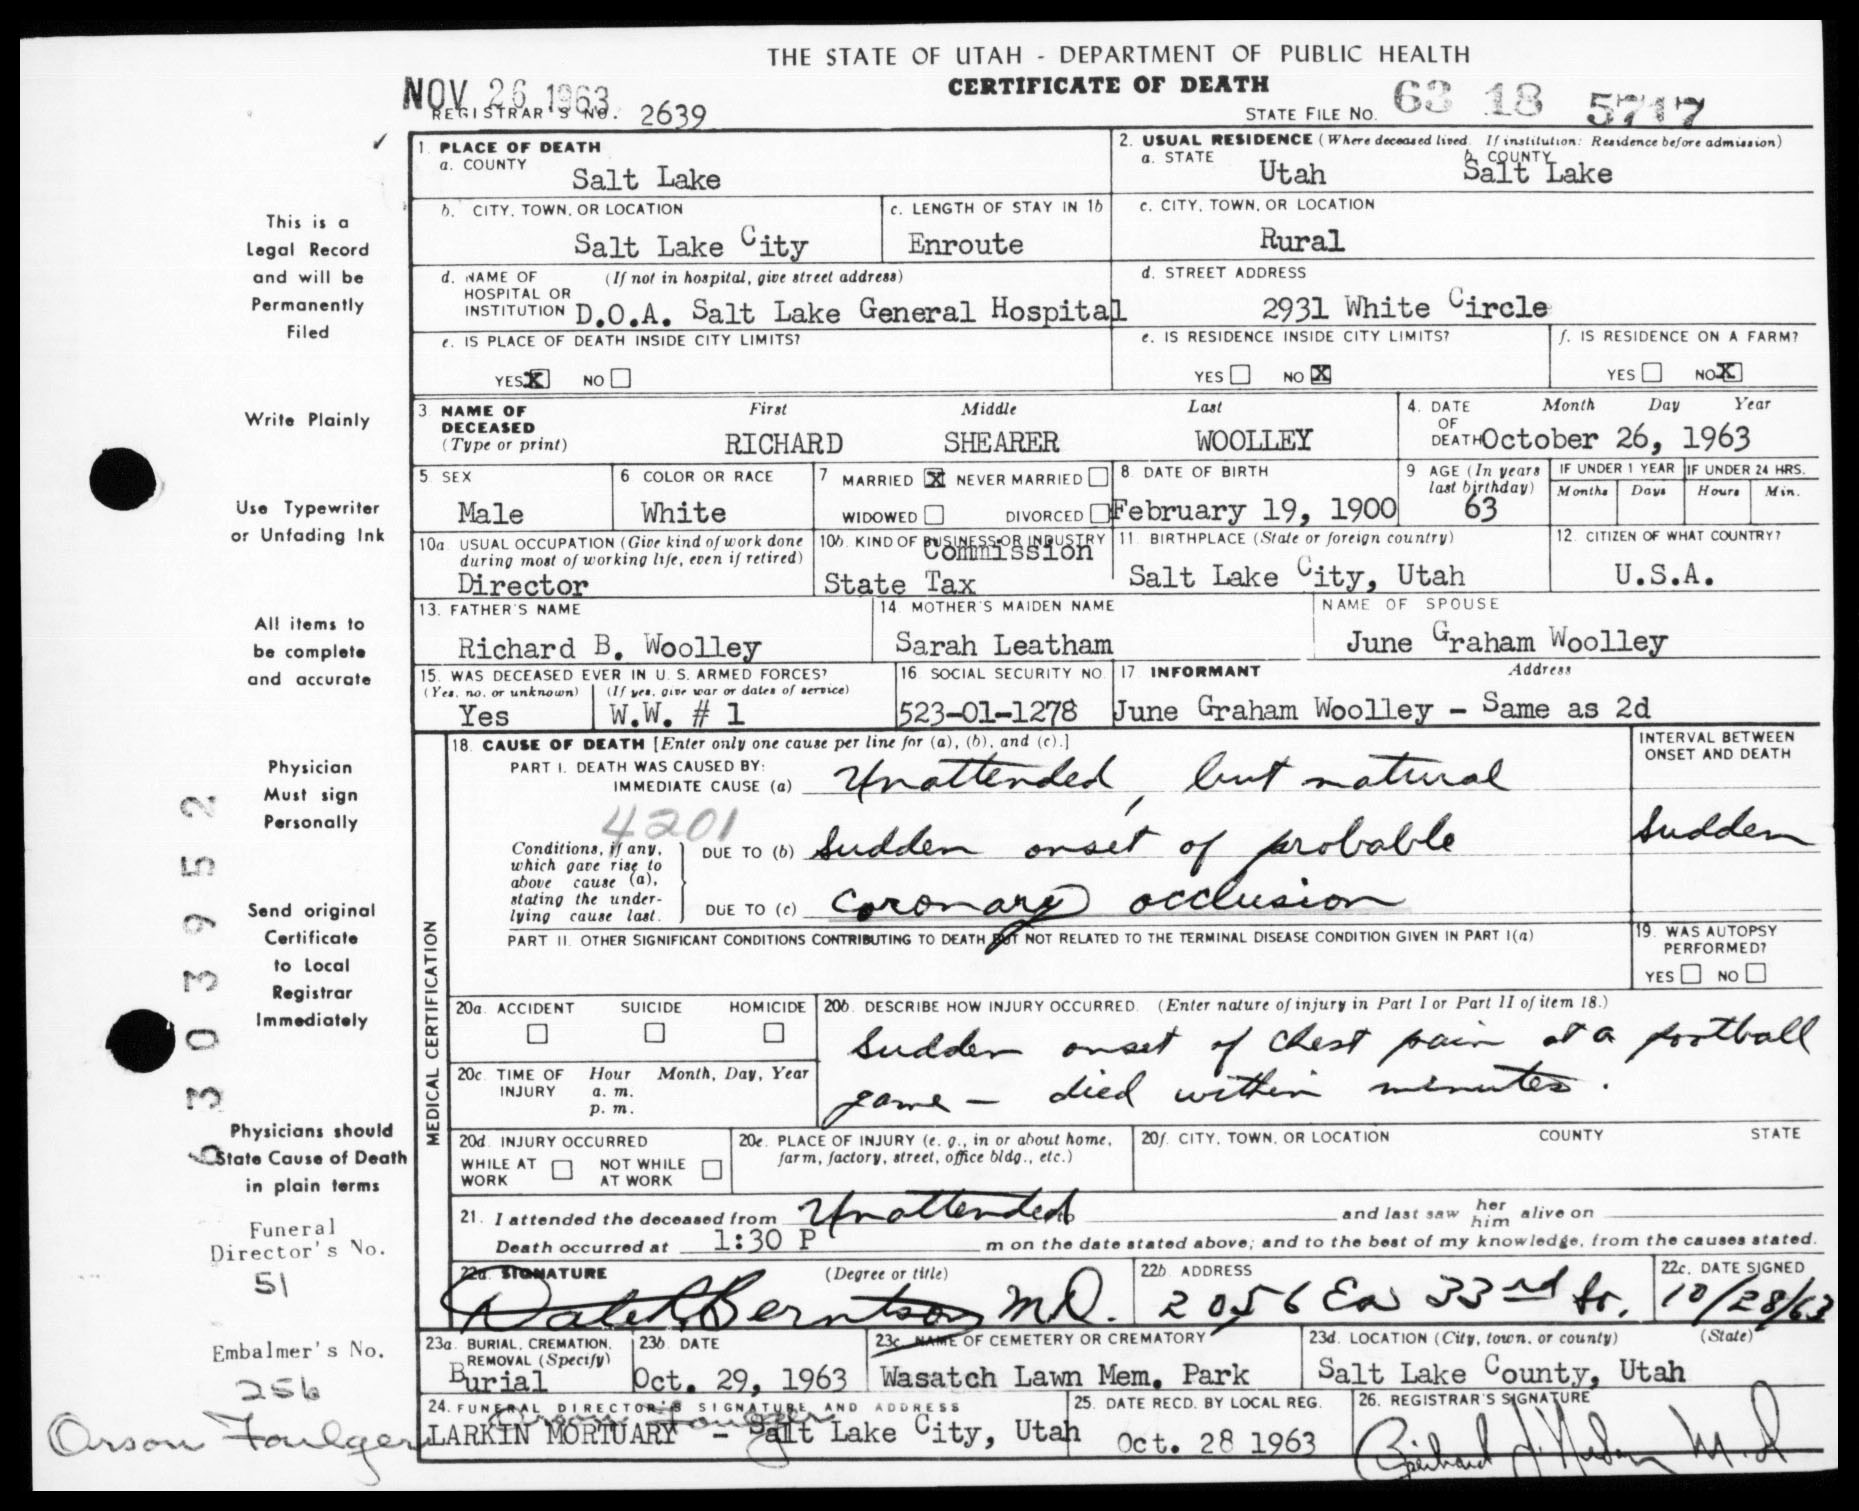 THE STATE OF UTAH - DEPARTMENT OF PUBLIC HEALTH
CERTIFICATE OF DEATH
NOV 26 1963
REGISTRAR'S NO. 2639
STATE FILE NO. 63 18 5717
1. PLACE OF DEATH
a. COUNTY
Salt Lake
2. USUAL RESIDENCE (Where deceased lived. If institution: Residence before admission)
a. STATE
Utah
b. COUNTY
Salt Lake
b. CITY, TOWN, OR LOCATION
Salt Lake City
c. LENGTH OF STAY IN 1b
Enroute
c. CITY, TOWN, OR LOCATION
Rural
d. NAME OF HOSPITAL OR INSTITUTION (If not in hospital, give street address)
D.O.A. Salt Lake General Hospital
d. STREET ADDRESS
2931 White Circle
e. IS PLACE OF DEATH INSIDE CITY LIMITS?
YES X NO
e. IS RESIDENCE INSIDE CITY LIMITS?
YES NO X
f. IS RESIDENCE ON A FARM?
YES NO X
3. NAME OF DECEASED (Type or print)
First Middle Last
RICHARD SHEARER WOOLLEY
4. DATE OF DEATH Month Day Year
October 26, 1963
5. SEX
Male
6. COLOR OR RACE
White
7. MARRIED X NEVER MARRIED
WIDOWED DIVORCED
8. DATE OF BIRTH
February 19, 1900
9. AGE (In years last birthday)
63
IF UNDER 1 YEAR
Months Days
IF UNDER 24 HRS.
Hours Min.
10a. USUAL OCCUPATION (Give kind of work done during most of working life, even if retired)
Director
10b. KIND OF BUSINESS OR INDUSTRY
Commission
State Tax
11. BIRTHPLACE (State or foreign country)
Salt Lake City, Utah
12. CITIZEN OF WHAT COUNTRY?
U.S.A.
13. FATHER'S NAME
Richard B. Woolley
14. MOTHER'S MAIDEN NAME
Sarah Leatham
NAME OF SPOUSE
June Graham Woolley
15. WAS DECEASED EVER IN U. S. ARMED FORCES?
(Yes, no, or unknown) (If yes, give war or dates of service)
Yes W.W. # 1
16. SOCIAL SECURITY NO.
523-01-1278
17. INFORMANT Address
June Graham Woolley - Same as 2d
MEDICAL CERTIFICATION
18. CAUSE OF DEATH [Enter only one cause per line for (a), (b), and (c).]
PART I. DEATH WAS CAUSED BY:
IMMEDIATE CAUSE (a) Unattended, but natural
4201
Conditions, if any, which gave rise to above cause (a), stating the underlying cause last.
DUE TO (b) Sudden onset of probable
DUE TO (c) coronary occlusion
INTERVAL BETWEEN ONSET AND DEATH
Sudden
PART II. OTHER SIGNIFICANT CONDITIONS CONTRIBUTING TO DEATH BUT NOT RELATED TO THE TERMINAL DISEASE CONDITION GIVEN IN PART I(a)
19. WAS AUTOPSY PERFORMED?
YES NO
20a. ACCIDENT SUICIDE HOMICIDE
20b. DESCRIBE HOW INJURY OCCURRED. (Enter nature of injury in Part I or Part II of item 18.)
Sudden onset of chest pain at a football
game - died within minutes.
20c. TIME OF INJURY Hour Month, Day, Year
a. m.
p. m.
20d. INJURY OCCURRED
WHILE AT WORK NOT WHILE AT WORK
20e. PLACE OF INJURY (e. g., in or about home, farm, factory, street, office bldg., etc.)
20f. CITY, TOWN, OR LOCATION COUNTY STATE
21. I attended the deceased from Unattended to and last saw her him alive on
Death occurred at 1:30 P m on the date stated above; and to the best of my knowledge, from the causes stated.
22a. SIGNATURE (Degree or title)
Dale R Berntson M.D.
22b. ADDRESS
2056 Ea 33rd So.
22c. DATE SIGNED
10/28/63
23a. BURIAL, CREMATION, REMOVAL (Specify)
Burial
23b. DATE
Oct. 29, 1963
23c. NAME OF CEMETERY OR CREMATORY
Wasatch Lawn Mem. Park
23d. LOCATION (City, town, or county) (State)
Salt Lake County, Utah
24. FUNERAL DIRECTOR'S SIGNATURE AND ADDRESS
Orson Foulger
LARKIN MORTUARY - Salt Lake City, Utah
25. DATE RECD. BY LOCAL REG.
Oct. 28 1963
26. REGISTRAR'S SIGNATURE
M.D
This is a
Legal Record
and will be
Permanently
Filed
Write Plainly
Use Typewriter
or Unfading Ink
All items to
be complete
and accurate
Physician
Must sign
Personally
Send original
Certificate
to Local
Registrar
Immediately
Physicians should
State Cause of Death
in plain terms
Funeral
Director's No.
51
Embalmer's No.
256
Orson Foulger
0303952